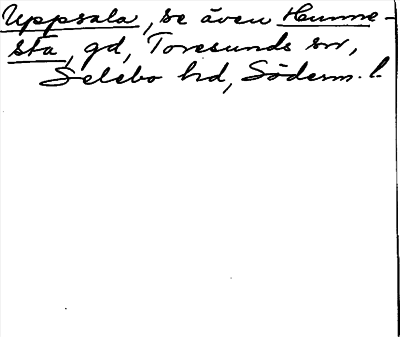 Uppsala, se även Hunne-
sta, gd, Toresunds sn,
Selebo hd, Söderm. l.